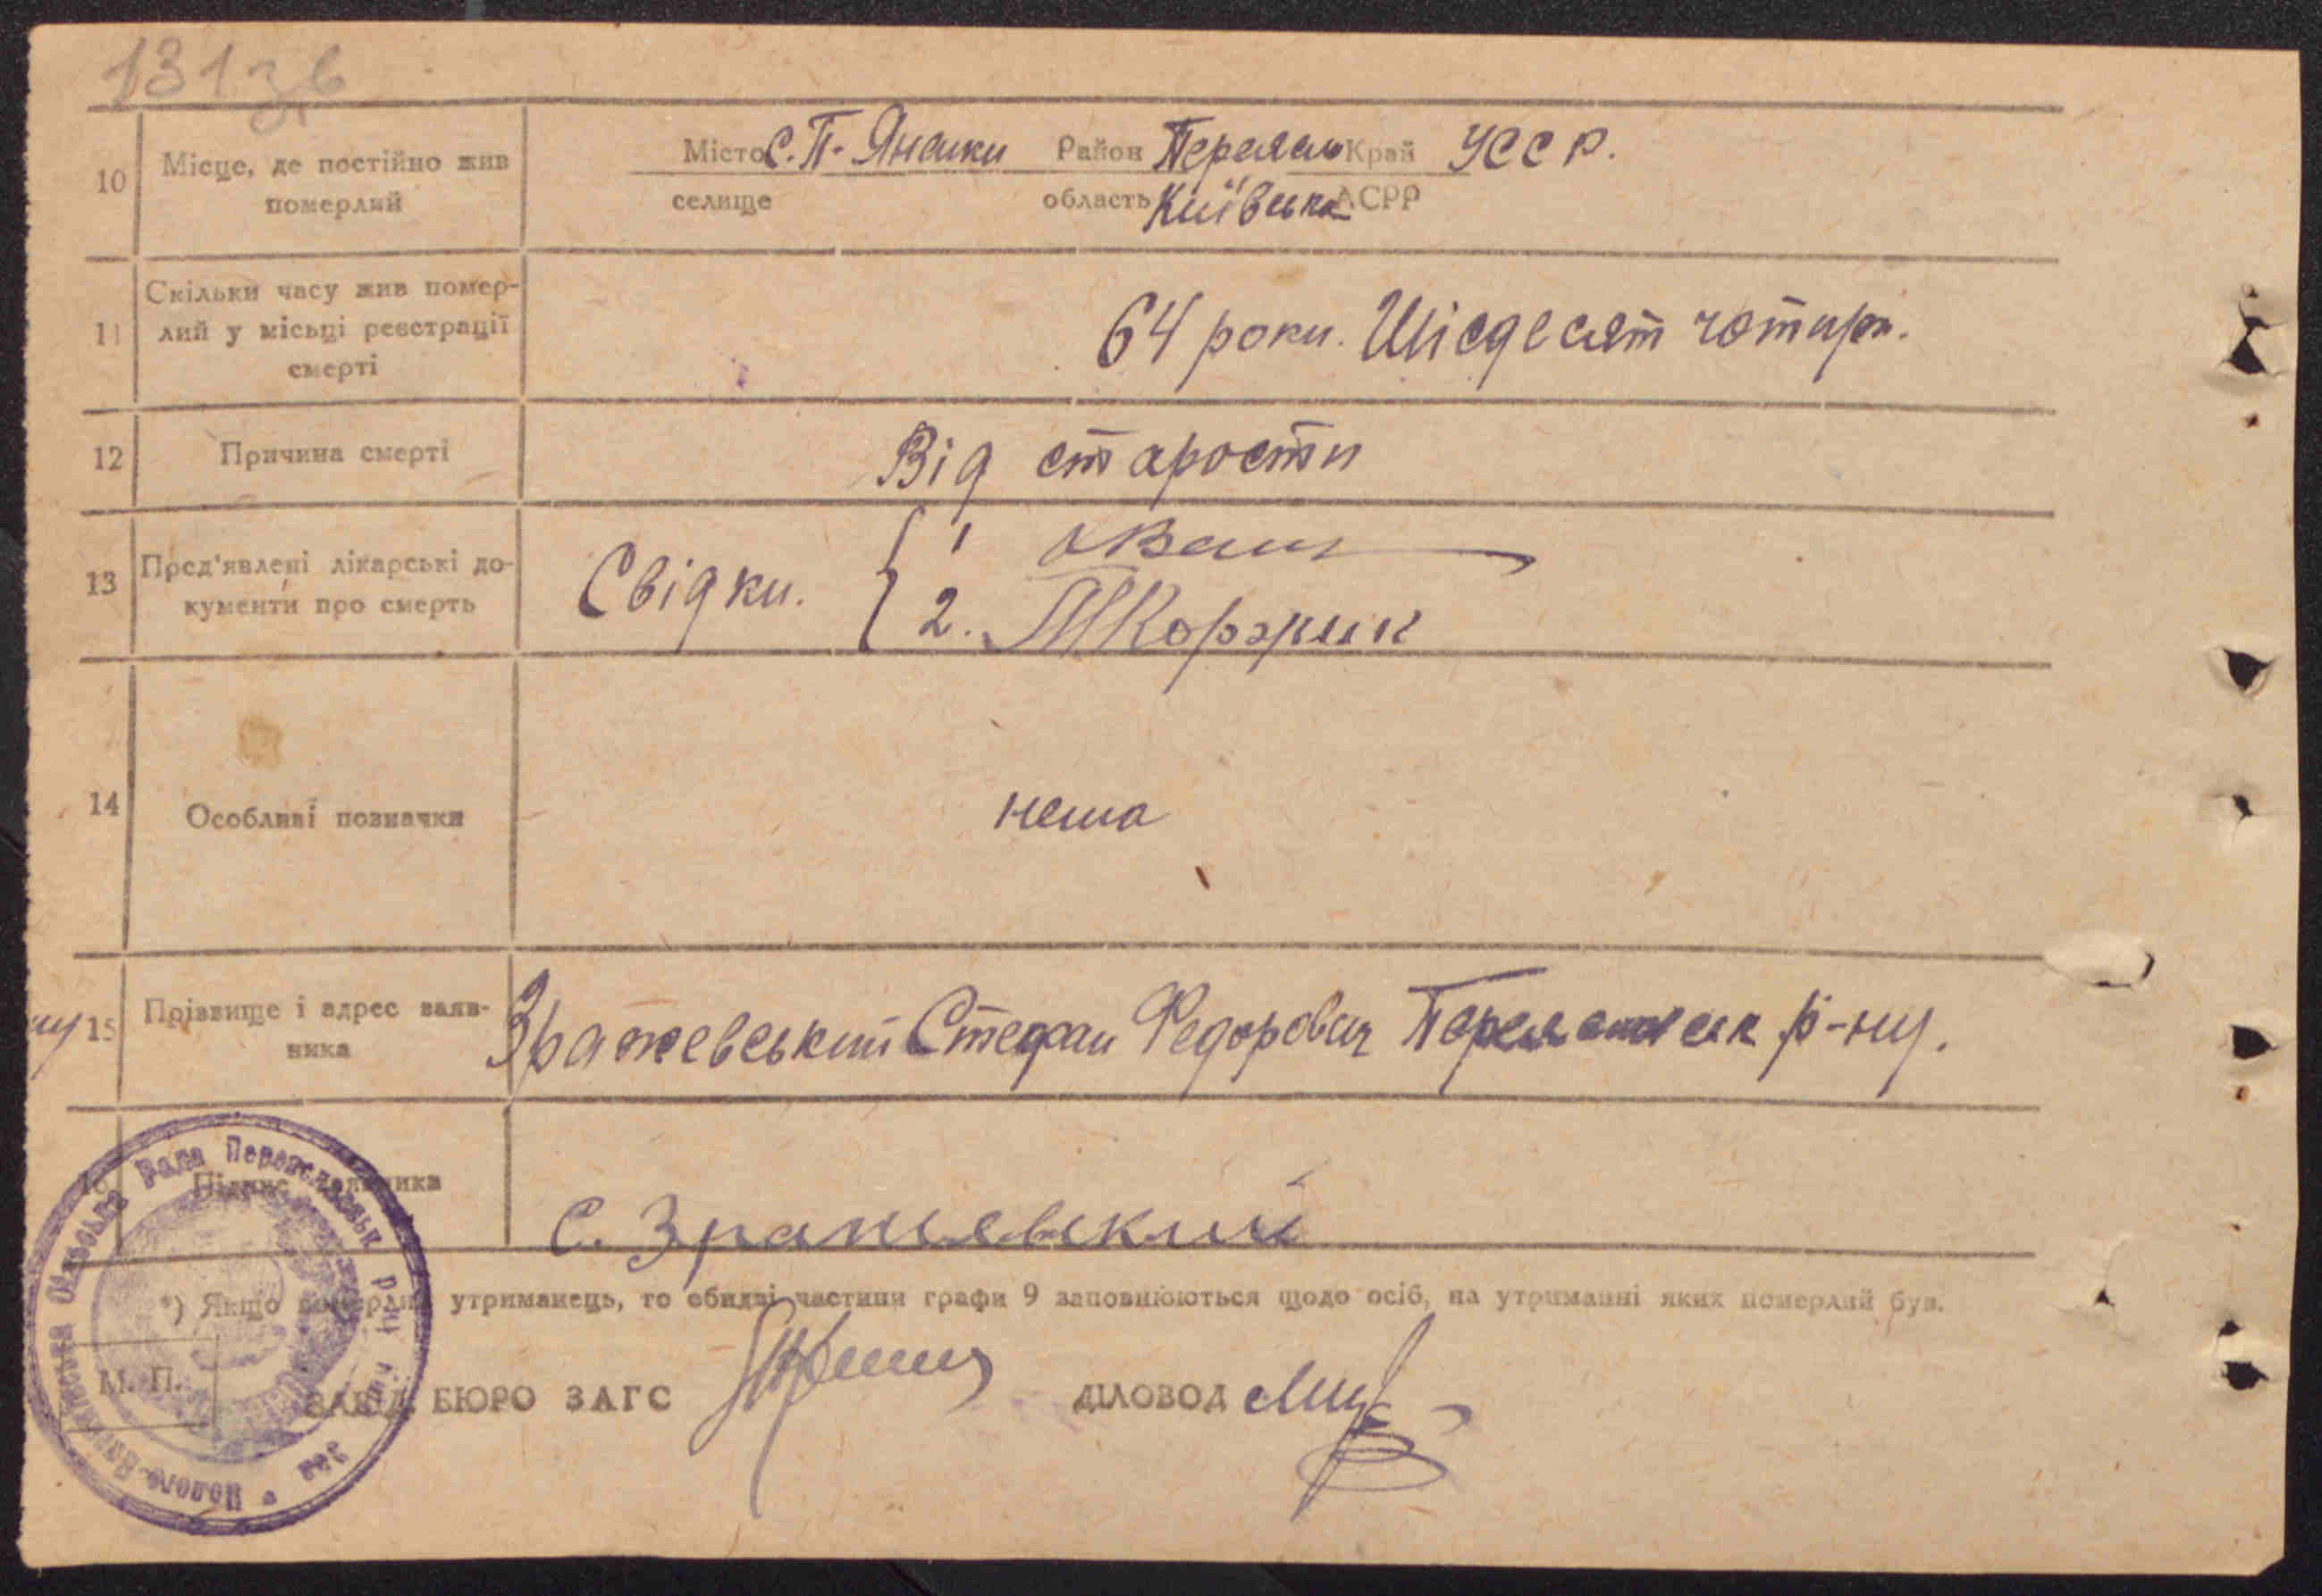 131 зв
10 Місце, де постійно жив
померлий
Місто С. П- Яненки Район Переясл Край УССР.
селище область Київська АСРР
11 Скільки часу жив помер-
лий у місьці реєстрації
смерті
64 роки. Шісдесят чотири.
12 Причина смерті Від старости
13 Пред'явлені лікарські до-
кументи про смерть
Свідки. 1
2. Коржик
14 Особливі позначки нема
15 Прізвище і адрес заяв-
ника
Зражевський Степан Федорович р-ну.
Підпис заявника
С. Зражевский
*) Якщо померлий утриманець, то обидві частини графи 9 заповнюються щодо осіб, на утриманні яких померлий був.
М. П.
ЗАВІД. БЮРО ЗАГС ДІЛОВОД
Рада